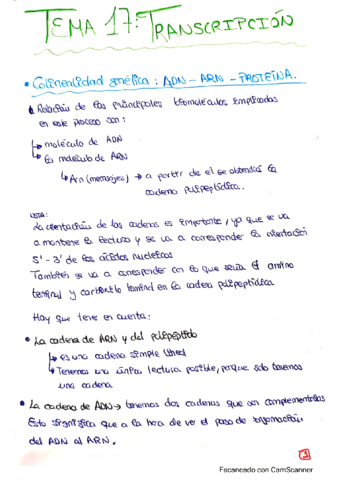 TEMA 17: TRANSCRIPCIÓN
• Colinealidad genética: ADN - ARN - PROTEÍNA.
Relación de las principales biomoléculas implicadas
en este proceso son:
↳ molécula de ADN
↳ la molécula de ARN
↳ Arn (mensajero) → a partir de el se obtendrá la
cadena polipeptídica.
NOTA:
La orientación de las cadenas es importante, ya que se va
a mantener la lectura y se va a corresponder la orientación
5' - 3' de los ácidos nucleicos
También se va a corresponder con lo que sería el amino
terminal y carboxilo terminal en la cadena polipeptídica.
Hay que tener en cuenta:
• La cadena de ARN y del polipéptido
↳ es una cadena simple lineal
↳ Tenemos una única lectura posible, porque solo tenemos
una cadena
• La cadena de ADN → tenemos dos cadenas que son complementarias
Esto significa que a la hora de ver el paso de información
del ADN al ARN.
1
Escaneado con CamScanner